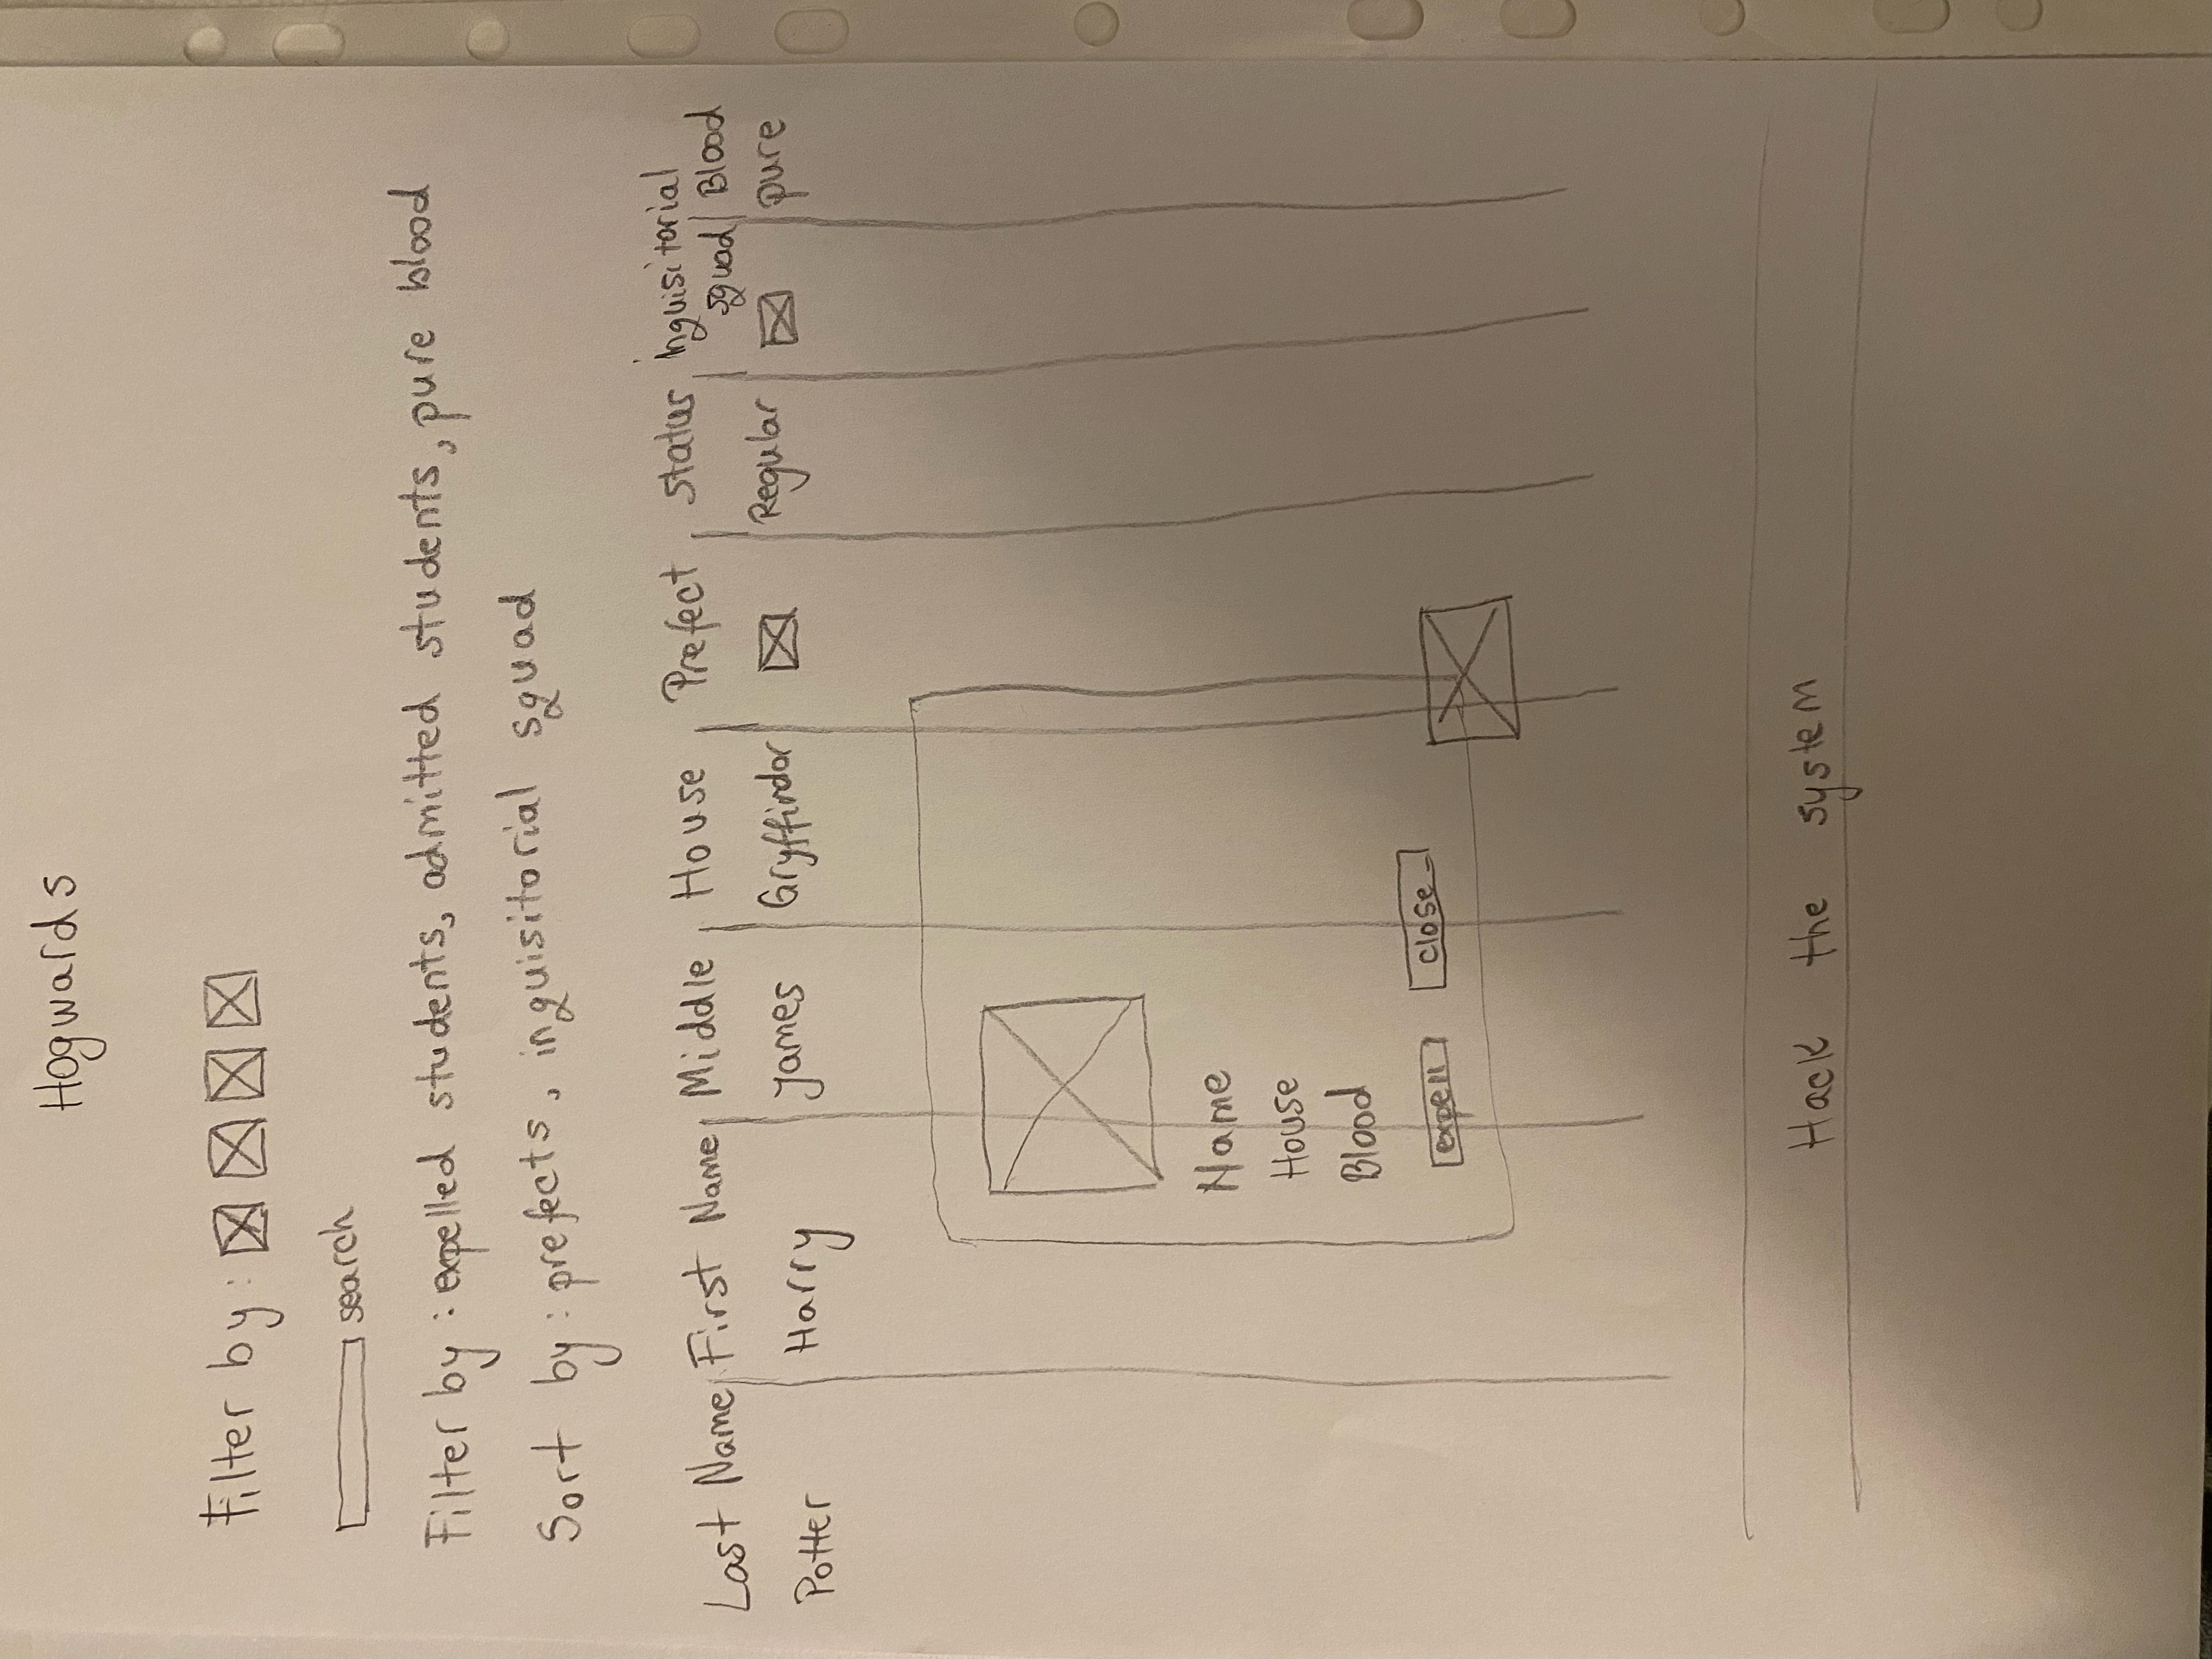 Hogwards
Filter by:
search
Filter by: expelled students, admitted students, pure blood
Sort by: prefects, inquisitorial squad
Last Name First Name Middle House Prefect Status inquisitorial squad Blood
Potter Harry James Gryffindor Regular pure
Name
House
Blood
expell close
Hack the system